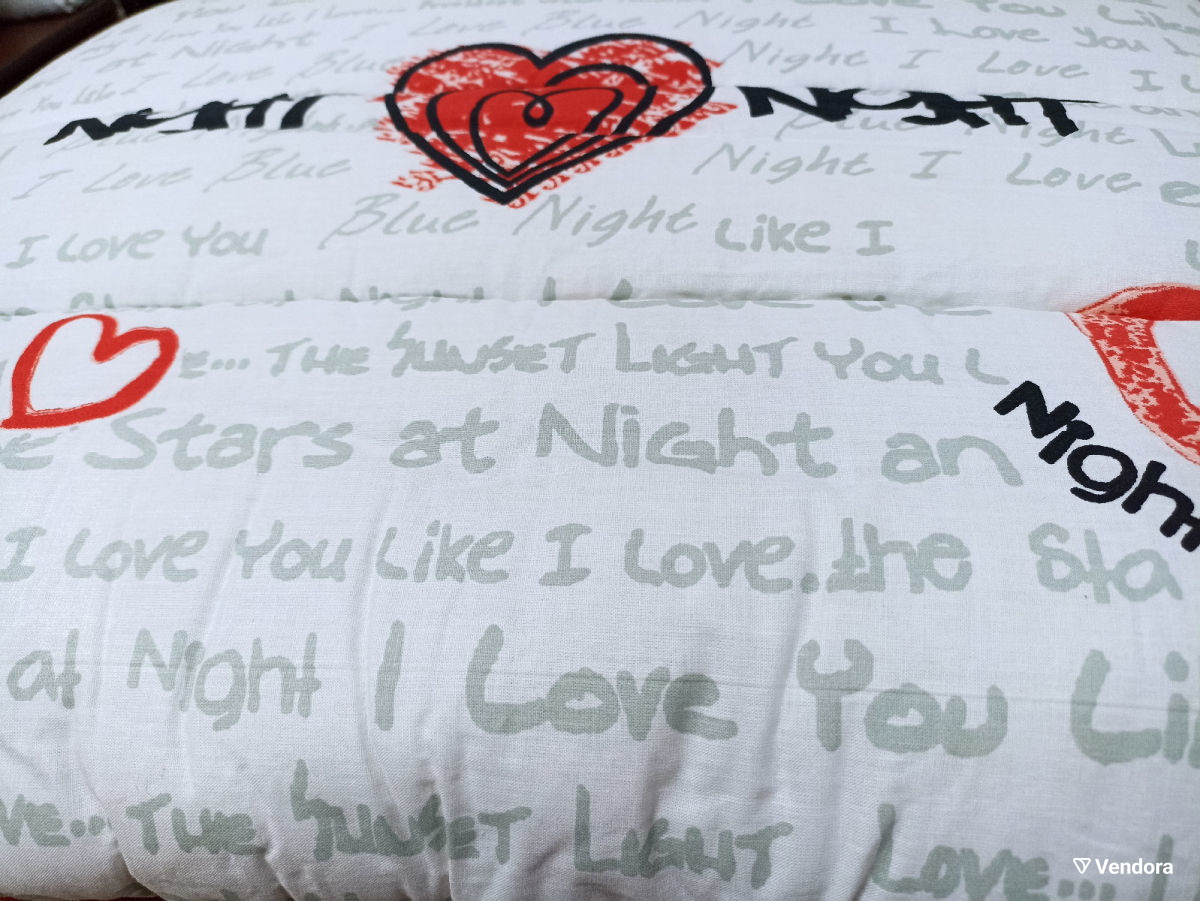 I Love You Like
at Night I Love Blue Night I Love You L
I Love Blue Night I Love I L
NIGHT NIGHT
I Love Blue Night I Love
I Love You Blue Night Like I
THE SUNSET LIGHT YOU L
Stars at Night an
Night
I Love You Like I Love. the Sta
at Night I Love You Li
THE SUNSET LIGHT LOVE... I
Vendora